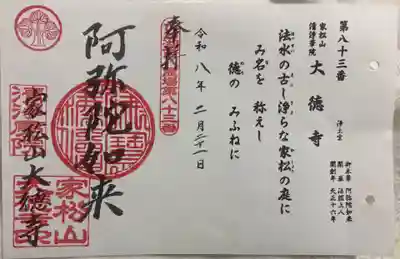 第八十三番
家松山
清浄華院
大徳寺
浄土宗
御本尊 阿弥陀如来
開基 法蓮上人
開創年 天正十六年
法水の古し浄らな家松の庭に
み名を 称えし
徳の みふねに
令和 八年 二月二十一日
奉拝
第八十三番
阿弥陀如来
家松山大徳寺
家松山